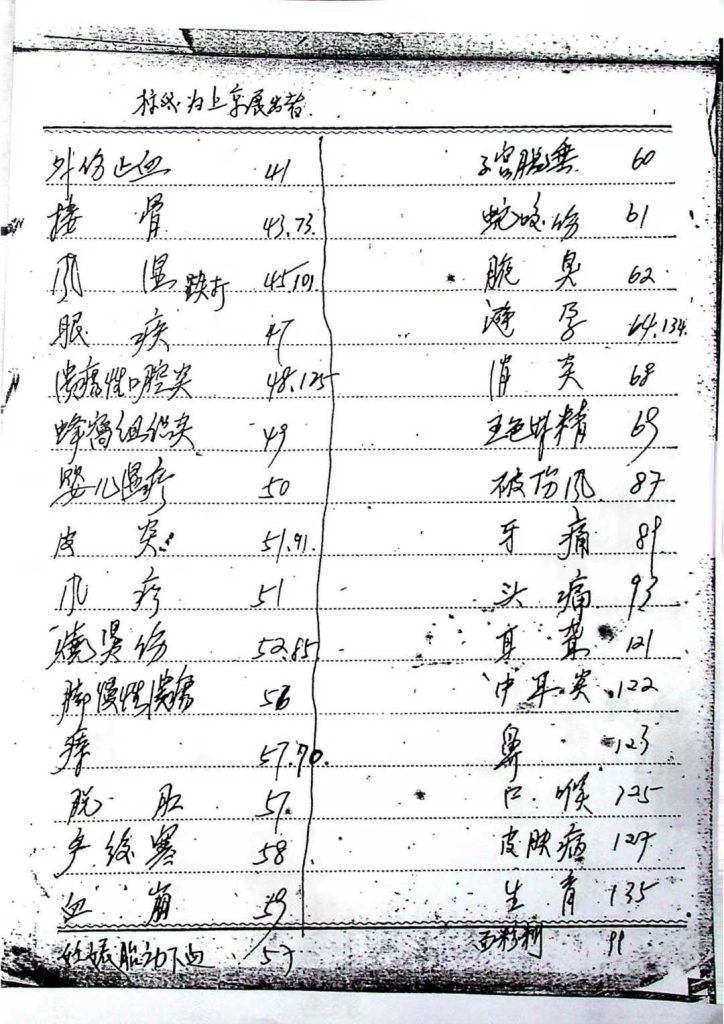 标 为上京展出者
外伤止血 41
接骨 43.73.
风湿 跌打 45.101
眼疾 47
溃疡性口腔炎 48.125
蜂窝组织炎 49
婴儿湿疹 50
皮炎 51.91.
风疹 51
烧烫伤 52.85.
脚慢性溃疡 56
痔 57.70.
脱肛 57.
58
血崩 59
妊娠胎动下血 57
子宫脱垂 60
蛇咬伤 61
腋臭 62
避孕 64.134.
消炎 68
69
破伤风 87
牙痛 89
头痛 93
耳聋 121
中耳炎 122
鼻 123
口喉 125
皮肤病 127
生育 135
99